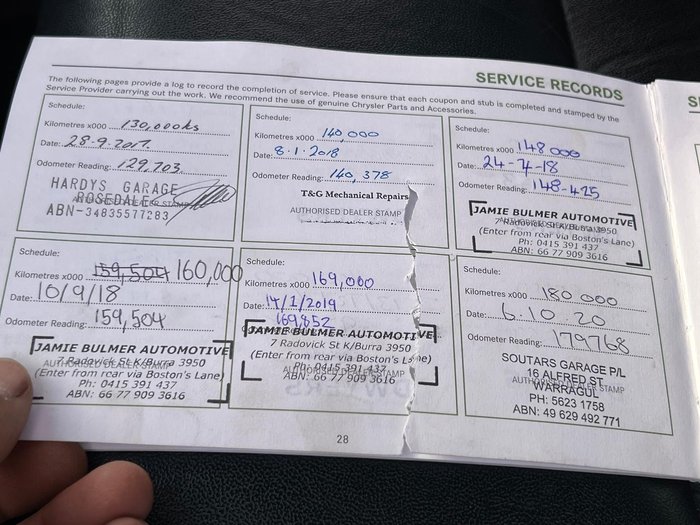 SERVICE RECORDS
The following pages provide a log to record the completion of service. Please ensure that each coupon and stub is completed and stamped by the
Service Provider carrying out the work. We recommend the use of genuine Chrysler Parts and Accessories.
Schedule:
Kilometres x000 130,000ks
Date: 28.9.2017.
Odometer Reading: 129,703
HARDYS GARAGE
ROSEDALE
DEALER STAMP
ABN-34835577283
Schedule:
Kilometres x000 140,000
Date: 8.1.2018
Odometer Reading: 140,378
T&G Mechanical Repairs
AUTHORISED DEALER STAMP
Schedule:
Kilometres x000 148000
Date: 24-7-18
Odometer Reading: 148-425
JAMIE BULMER AUTOMOTIVE
7 Radovick St K/Burra 3950
(Enter from rear via Boston's Lane)
Ph: 0415 391 437
ABN: 66 77 909 3616
Schedule:
Kilometres x000 159,504 160,000
Date: 10/9/18
Odometer Reading: 159,504
JAMIE BULMER AUTOMOTIVE
7 Radovick St K/Burra 3950
AUTHORISED DEALER STAMP
(Enter from rear via Boston's Lane)
Ph: 0415 391 437
ABN: 66 77 909 3616
Schedule:
Kilometres x000 169,000
Date: 14/1/2019
169,852
JAMIE BULMER AUTOMOTIVE
7 Radovick St K/Burra 3950
(Enter from rear via Boston's Lane)
Ph: 0415 391 437
AUTHORISED DEALER STAMP
ABN: 66 77 909 3616
Schedule:
Kilometres x000 180 000
Date: 6.10.20
Odometer Reading: 179768
SOUTARS GARAGE P/L
16 ALFRED ST
AUTHORISED DEALER STAMP
WARRAGUL
PH: 5623 1758
ABN: 49 629 492 771
28